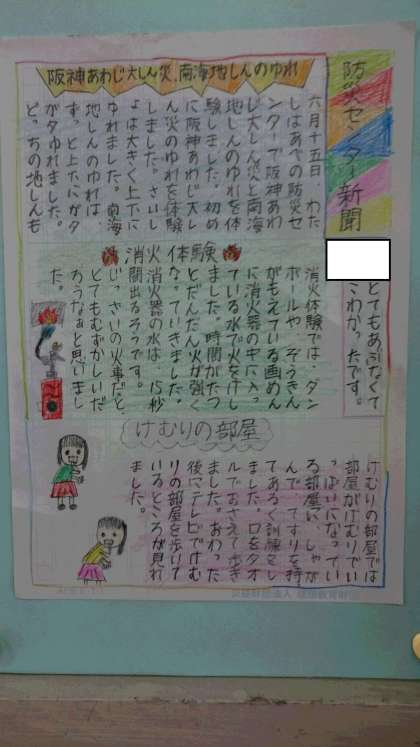 防災センター新聞
阪神あわじ大しん災、南海地しんのゆれ
六月十五日 わた
しはあべの防災セ
ンターで阪神あわ
じ大しん災と南海
地しんのゆれを体
験しました。初め
に阪神あわじ大し
ん災のゆれを体験
しました。さいし
ょは大きく上下に
ゆれました。南海
地しんのゆれは、
ずっと上下にガタ
ガタゆれました。
どっちの地しんも
とてもあぶなくて
こわかったです。
消火体験
消火体験では、ダン
ボールや、ぞうきん
がもえている画めん
に消火器の中に入っ
ている水で火をけし
ました。時間がたつ
とだんだん火が強く
なっていきました。
消火器の水は、15秒
間出るそうです。
じっさいの火事だと
とてもむずかしいだ
ろうなぁと思いまし
た。
けむりの部屋
けむりの部屋では
部屋がけむりでい
っぱいになってい
る部屋に、しゃが
んで、てすりを持っ
てあるく訓練をし
ました。口をタオ
ルでおさえて歩き
ました。おわった
後にテレビでけむ
りの部屋を歩いて
いるところが見れ
ました。
公益財団法人 理想教育財団